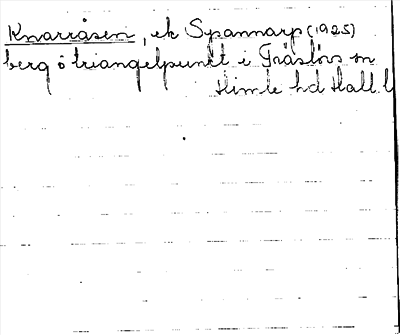 Knarråsen, ek Spannarp (1925)
berg o triangelpunkt i Gräslövs sn
Himle hd Hall. l